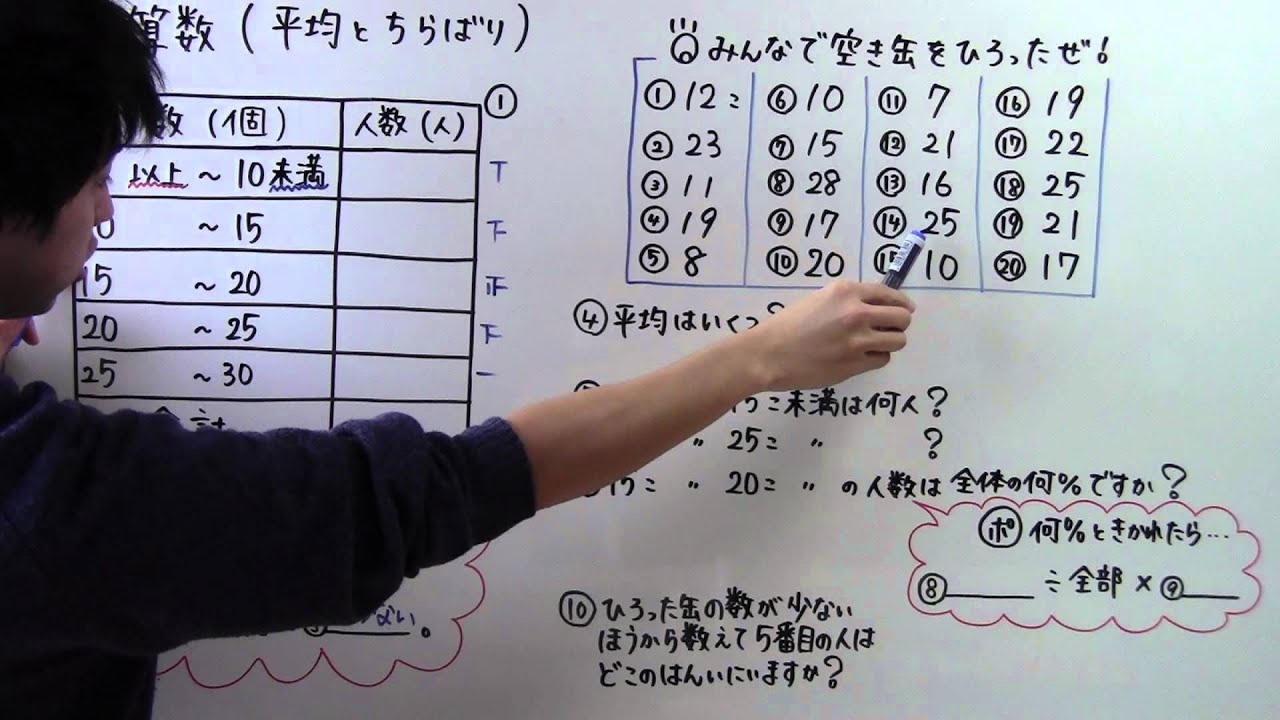 算数(平均とちらばり)
数(1個) 人数(人)
①
以上~10未満
T
~15
下
15 ~20
正
20 ~25
下
25 ~30
一
みんなで空き缶をひろったぜ!
①12こ ⑥10 ⑪7 ⑯19
②23 ⑦15 ⑫21 ⑰22
③11 ⑧28 ⑬16 ⑱25
④19 ⑨17 ⑭25 ⑲21
⑤8 ⑩20 ⑮10 ⑳17
④平均はいくつ?
15こ未満は何人?
〃 25こ 〃 ?
15こ 〃 20こ 〃 の人数は全体の何%ですか?
ポ 何%ときかれたら…
⑧____÷全部×⑨____
⑩ひろった缶の数が少ない
ほうから数えて5番目の人は
どこのはんいにいますか?